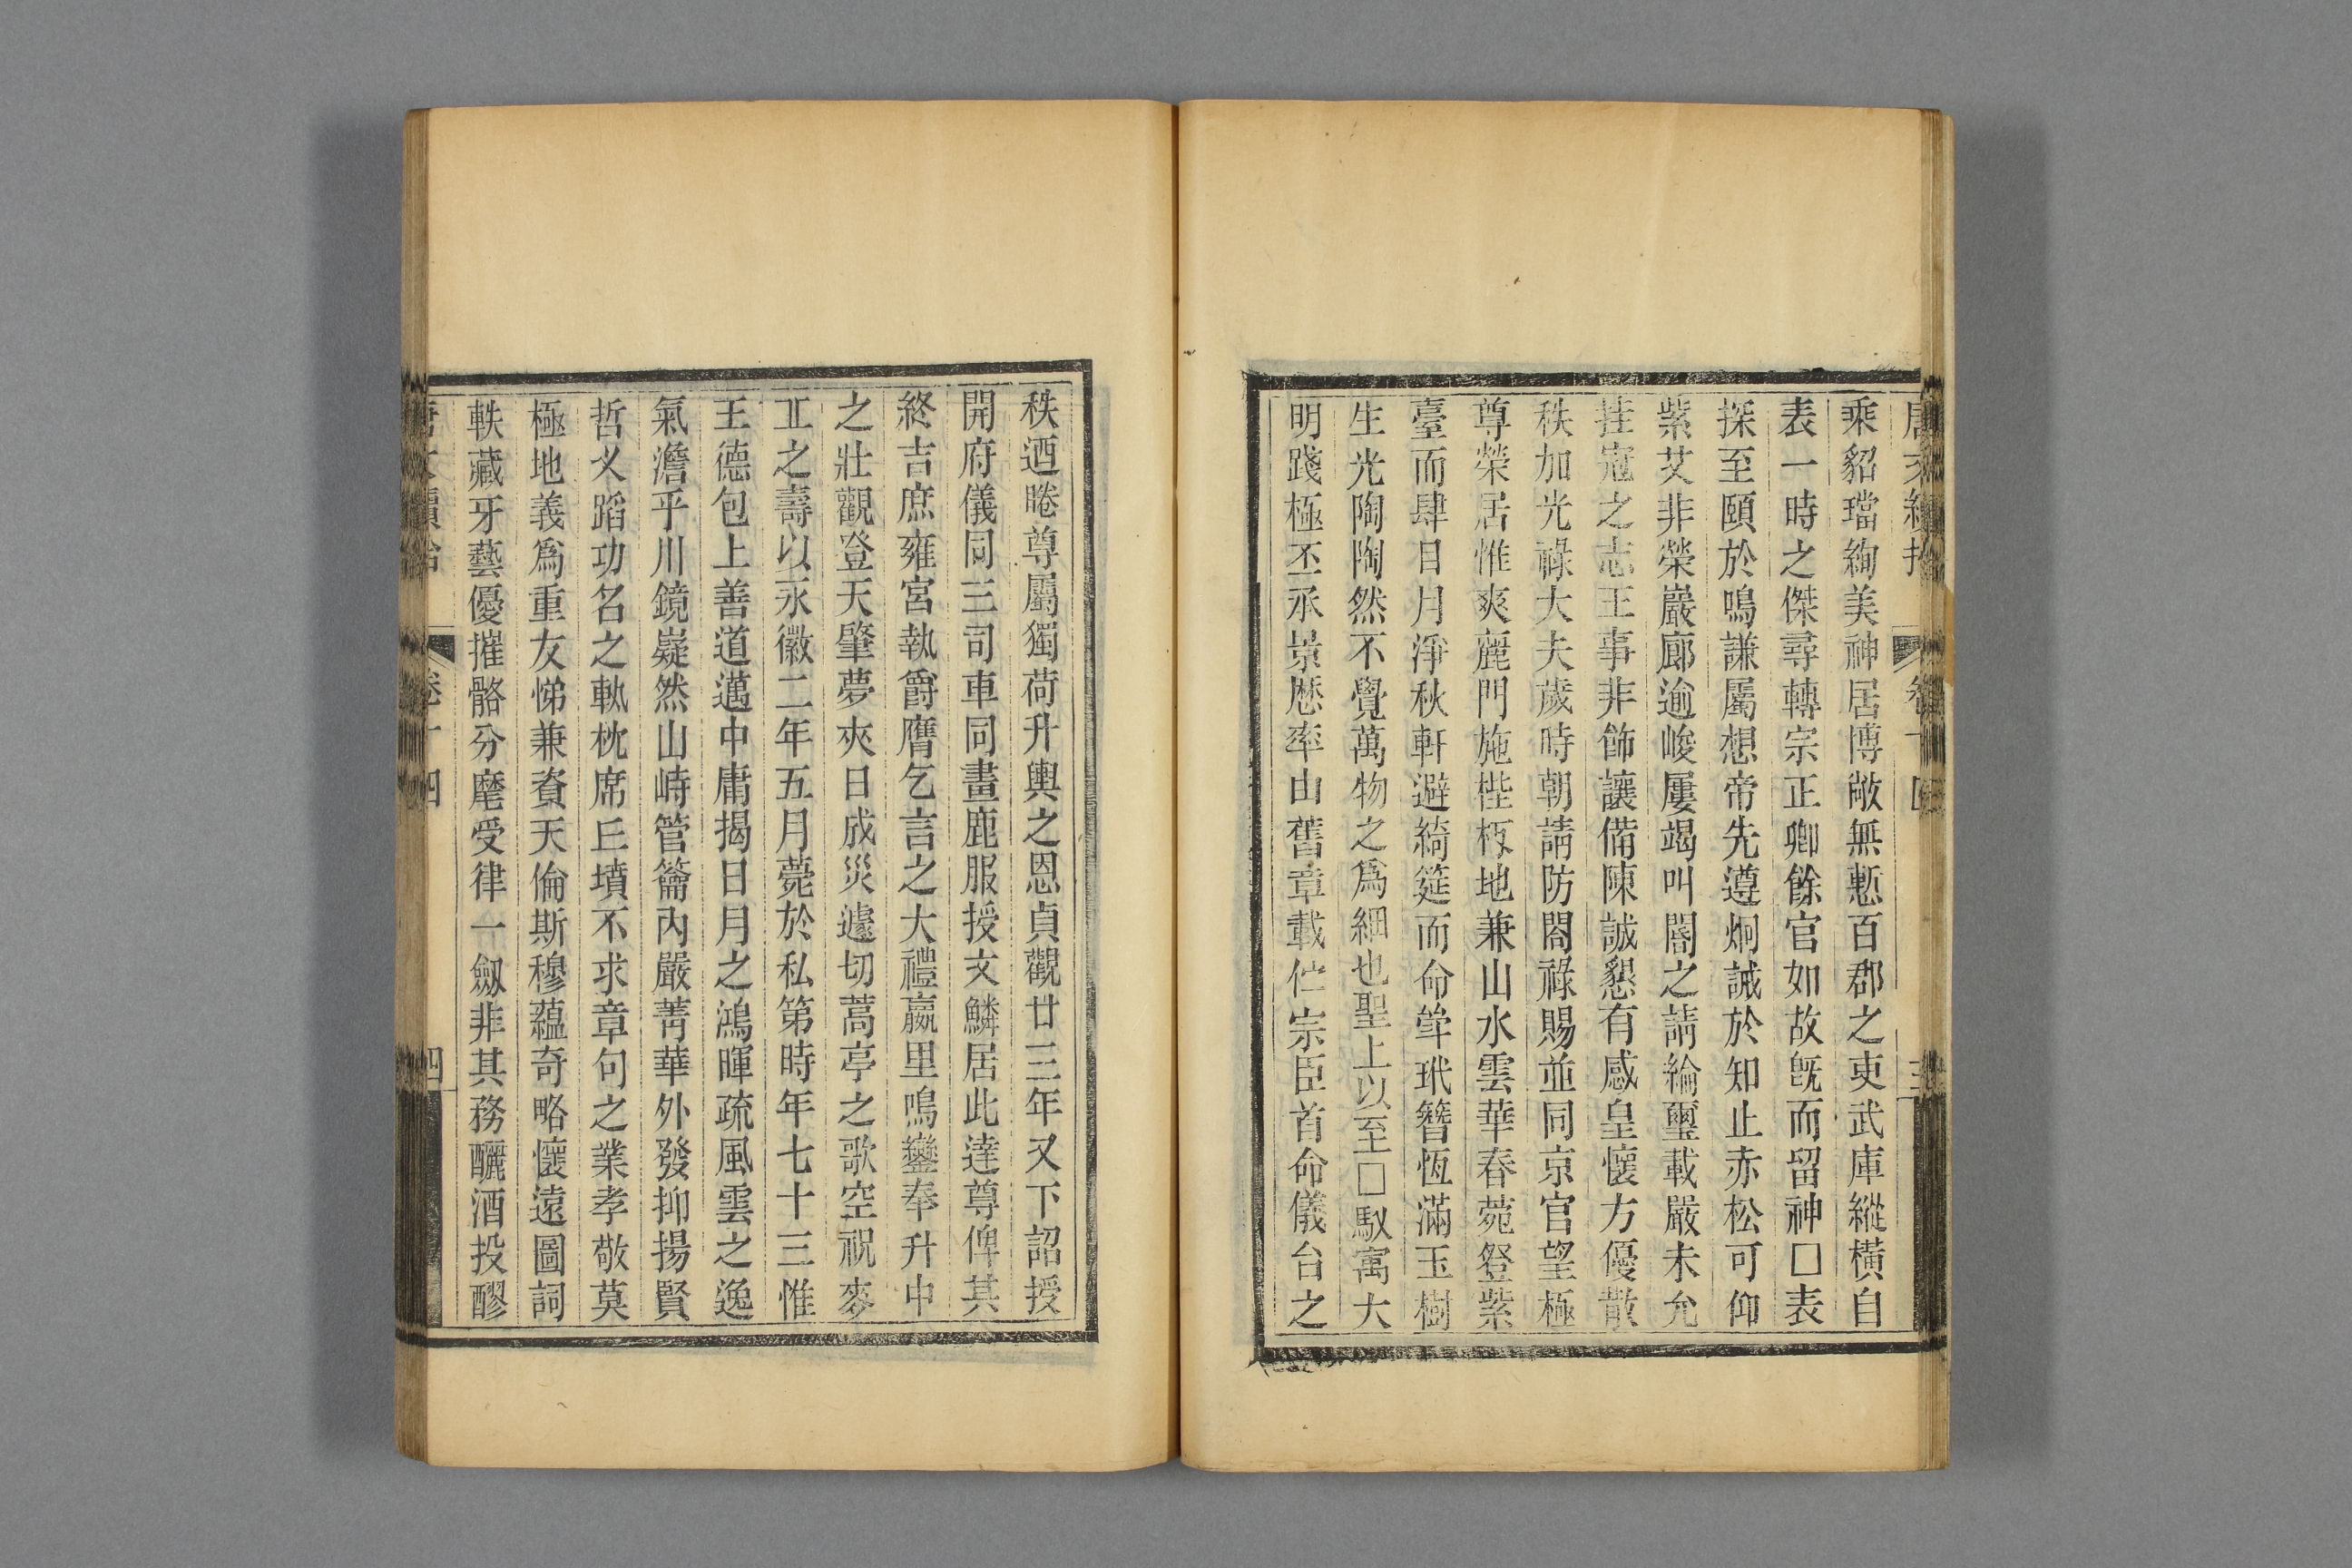 乘貂璫絢美神居博敞無慙百郡之吏武庫縱橫自
表一時之傑尋轉宗正卿餘官如故旣而留神□表
探至頤於鳴謙屬想帝先遵炯誡於知止赤松可仰
紫艾非榮巖廊逾峻屢竭叫閽之請綸璽載嚴未允
挂冠之志王事非飾讓備陳誠懇有感皇懷方優散
秩加光祿大夫歲時朝請防閤祿賜並同京官望極
尊榮居惟爽麗門施梐枑地兼山水雲華春菀登紫
臺而肆日月淨秋軒避綺筵而命斝玳簪恆滿玉樹
生光陶陶然不覺萬物之爲細也聖上以至□馭寓大
明踐極丕承景厯率由舊章載伫宗臣首命儀台之
秩迺睠尊屬獨荷升輿之恩貞觀廿三年又下詔授
開府儀同三司車同畫鹿服授文鱗居此達尊俾其
終吉庶雍宮執爵膺乞言之大禮嬴里鳴鑾奉升中
之壯觀登天肇夢夾日成災遽切蒿亭之歌空祝麥
丘之壽以永徽二年五月薨於私第時年七十三惟
王德包上善道邁中庸揭日月之鴻暉疏風雲之逸
氣澹乎川鏡嶷然山峙管籥內嚴菁華外發抑揚賢
哲乂蹈功名之軌枕席丘墳不求章句之業孝敬莫
極地義爲重友悌兼資天倫斯穆蘊奇略懷遠圖詞
軼藏牙藝優摧骼分麾受律一劔非其務釃酒投醪
卷十四 四